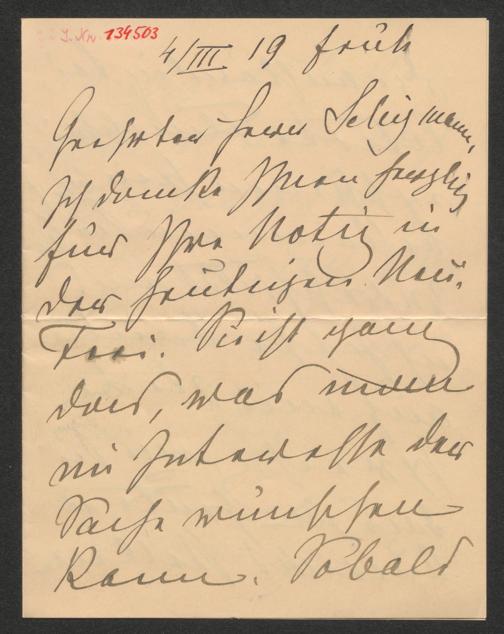 I. Nr. 134503
4/III 19 früh
Geehrter Herr Seligmann,
Ich danke Ihnen herzlich
für Ihre Notiz in
der heutigen Neu.
Frei. Sie ist ganz
das, was man
im Interesse der
Sache wünschen
kann. Sobald